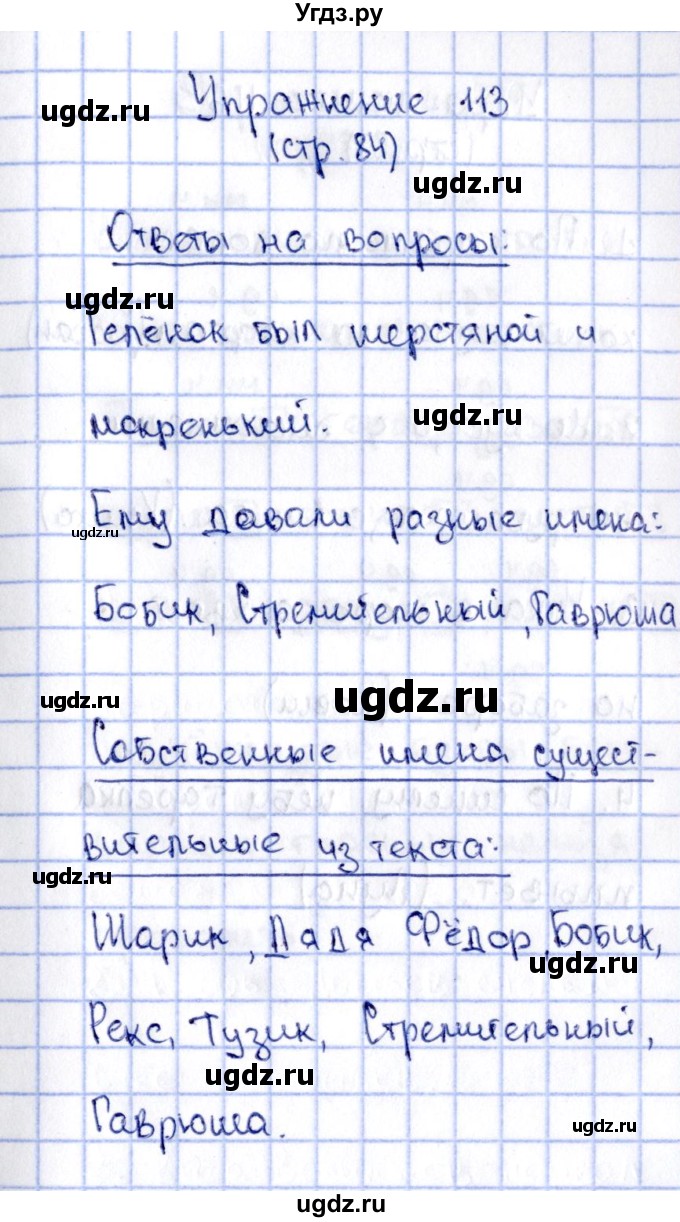 Угдз.ру
ugdz.ru
Упражнение 113
(стр. 84)
ugdz.ru
Ответы на вопросы:
ugdz.ru
Телёнок был шерстяной и
мокренький.
ugdz.ru
Ему давали разные имена:
ugdz.ru
Бобик, Стремительный, Гаврюша
ugdz.ru
ugdz.ru
Собственные имена сущест-
вительные из текста:
ugdz.ru
Шарик, Дядя Фёдор, Бобик,
ugdz.ru
Рекс, Тузик, Стремительный,
ugdz.ru
Гаврюша.
ugdz.ru
ugdz.ru